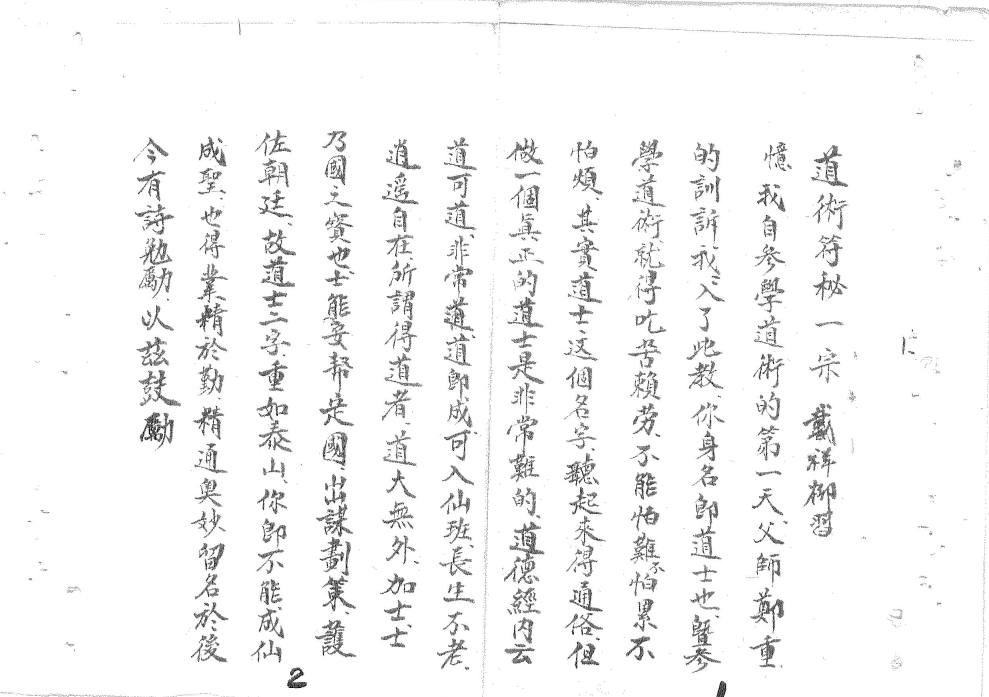 道術符秘一宗　戴祥柳習
憶我自參學道術的第一天、父師鄭重
的訓訴我、入了此教、你身名即道士也、暨參
學道術就得吃苦賴勞、不能怕難不怕累不
怕煩、其實道士、这個名字、聽起來得通俗、但
做一個真正的道士是非常難的、道德經內云
道可道、非常道、道即成可入仙班、長生不老、
逍遥自在、所謂得道者、道大無外、加士、士
乃國之寶也、士能安帮定國、出謀劃策、護
佐朝廷、故道士二字、重如泰山、你即不能成仙
成聖、也得業精於勤、精通奥妙留名於後
今有詩勉勵、以茲鼓勵
1
2